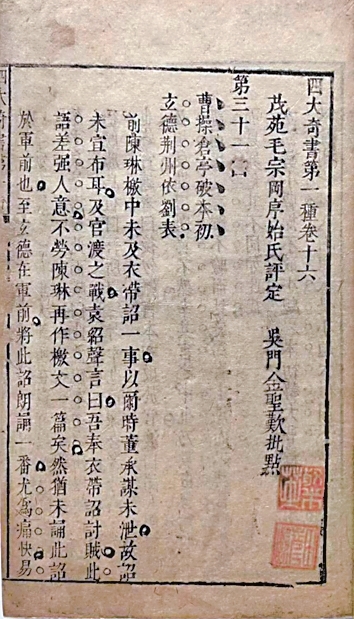 四大奇書第一種卷十六
茂苑毛宗岡序始氏評定 吳門金聖歎批點
第三十一囘
曹操倉亭破本初
玄德荆州依劉表
前陳琳檄中未及衣帶詔一事以爾時董承謀未泄故詔
未宣布耳及官渡之戰袁紹聲言曰吾奉衣帶詔討賊此
語差强人意不勞陳琳再作檄文一篇矣然猶未誦此詔
於軍前也至玄德在軍前將此詔朗誦一番尤爲痛快易